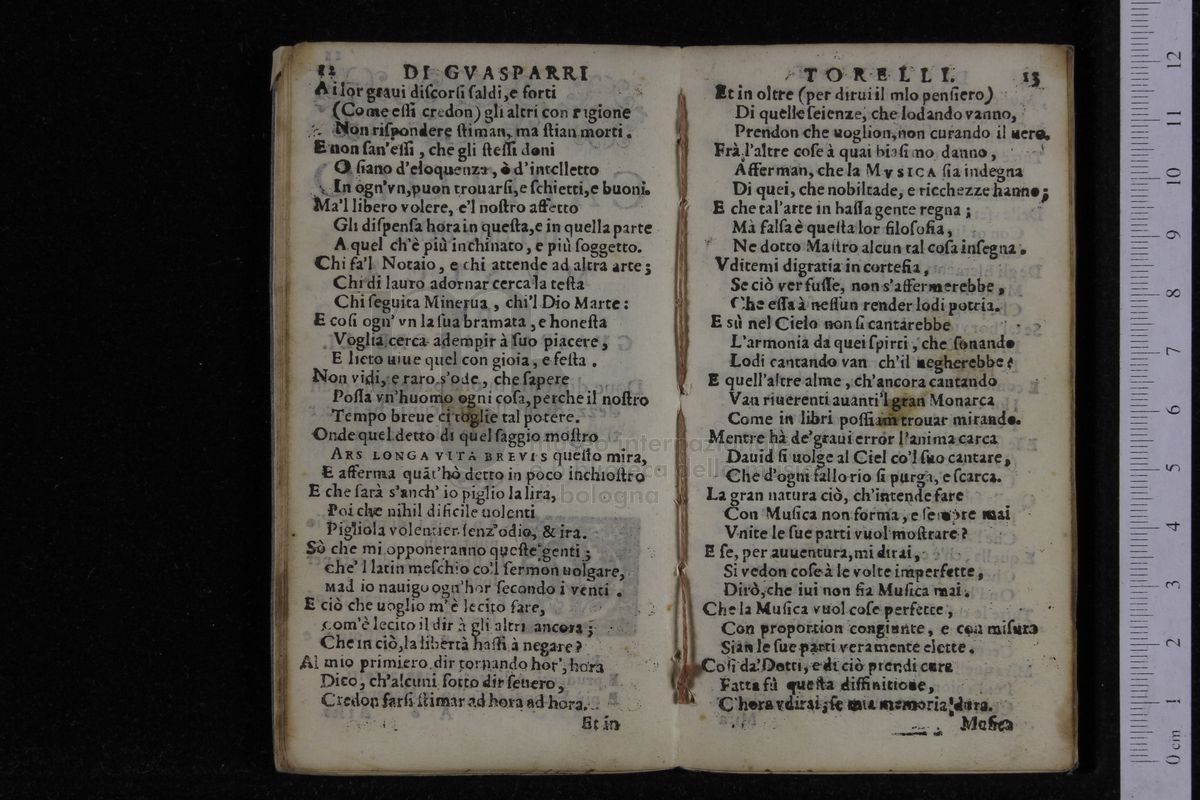 12 DI GVASPARRI
A i lor graui discorsi saldi, e forti
(Come essi credon) gli altri con rigione
Non rispondere stiman, ma stian morti.
E non san'essi, che gli stessi doni
O siano d'eloquenza, ò d'intelletto
In ogn'vn, puon trouarsi, e schietti, e buoni.
Ma'l libero volere, e'l nostro affetto
Gli dispensa hora in questa, e in quella parte
A quel ch'è più inchinato, e più soggetto.
Chi fa'l Notaio, e chi attende ad altra arte;
Chi di lauro adornar cerca la testa
Chi seguita Minerua, chi'l Dio Marte:
E cosi ogn' vn la sua bramata, e honesta
Voglia cerca adempir à suo piacere,
E lieto uiue quel con gioia, e festa.
Non vidi, e raro s'ode, che sapere
Possa vn'huomo ogni cosa, perche il nostro
Tempo breue ci toglie tal potere.
Onde quel detto di quel saggio mostro
ARS LONGA VITA BREVIS questo mira,
E afferma quāt'hò detto in poco inchiostro
E che sarà s'anch' io piglio la lira,
Poi che nihil dificile uolenti
Pigliola volentier senz'odio, & ira.
Sò che mi opponeranno queste genti;
che' l latin meschio co'l sermon uolgare,
mad io nauigo ogn'hor secondo i venti.
E ciò che uoglio m'è lecito fare,
com'è lecito il dir à gli altri ancora;
Che in ciò, la libertà hassi à negare?
Al mio primiero dir tornando hor', hora
Dico, ch'alcuni sotto dir seuero,
Credon farsi stimar ad hora ad hora.
Et in
TORELLI. 13
Et in oltre (per dirui il mlo pensiero)
Di quelle scienze, che lodando vanno,
Prendon che uoglion, non curando il uero.
Frà l'altre cose à quai biasimo danno,
Afferman, che la MVSICA sia indegna
Di quei, che nobiltade, e ricchezze hanno;
E che tal'arte in bassa gente regna;
Mà falsa è questa lor filosofia,
Ne dotto Mastro alcun tal cosa insegna.
Vditemi digratia in cortesia,
Se ciò ver fusse, non s'affermerebbe,
Che essa à nessun render lodi potria.
E sù nel Cielo non si cantarebbe
L'armonia da quei spirti, che sonando
Lodi cantando van ch'il negherebbe?
E quell'altre alme, ch'ancora cantando
Van riuerenti auanti'l gran Monarca
Come in libri possiam trouar mirando.
Mentre hà de'graui error l'anima carca
Dauid si uolge al Ciel co'l suo cantare,
Che d'ogni fallo rio si purga, e scarca.
La gran natura ciò, ch'intende fare
Con Musica non forma, e sempre mai
Vnite le sue parti vuol mostrare?
E se, per auuentura, mi dirai,
Si vedon cose à le volte imperfette,
Dirò, che iui non fia Musica mai.
Che la Musica vuol cose perfette,
Con proportion congiunte, e con misura
Sian le sue parti veramente elette.
Cosi da' Dotti, e di ciò prendi cura
Fatta fù questa diffinitione,
C'hora vdirai, se mia memoria dura.
Musica